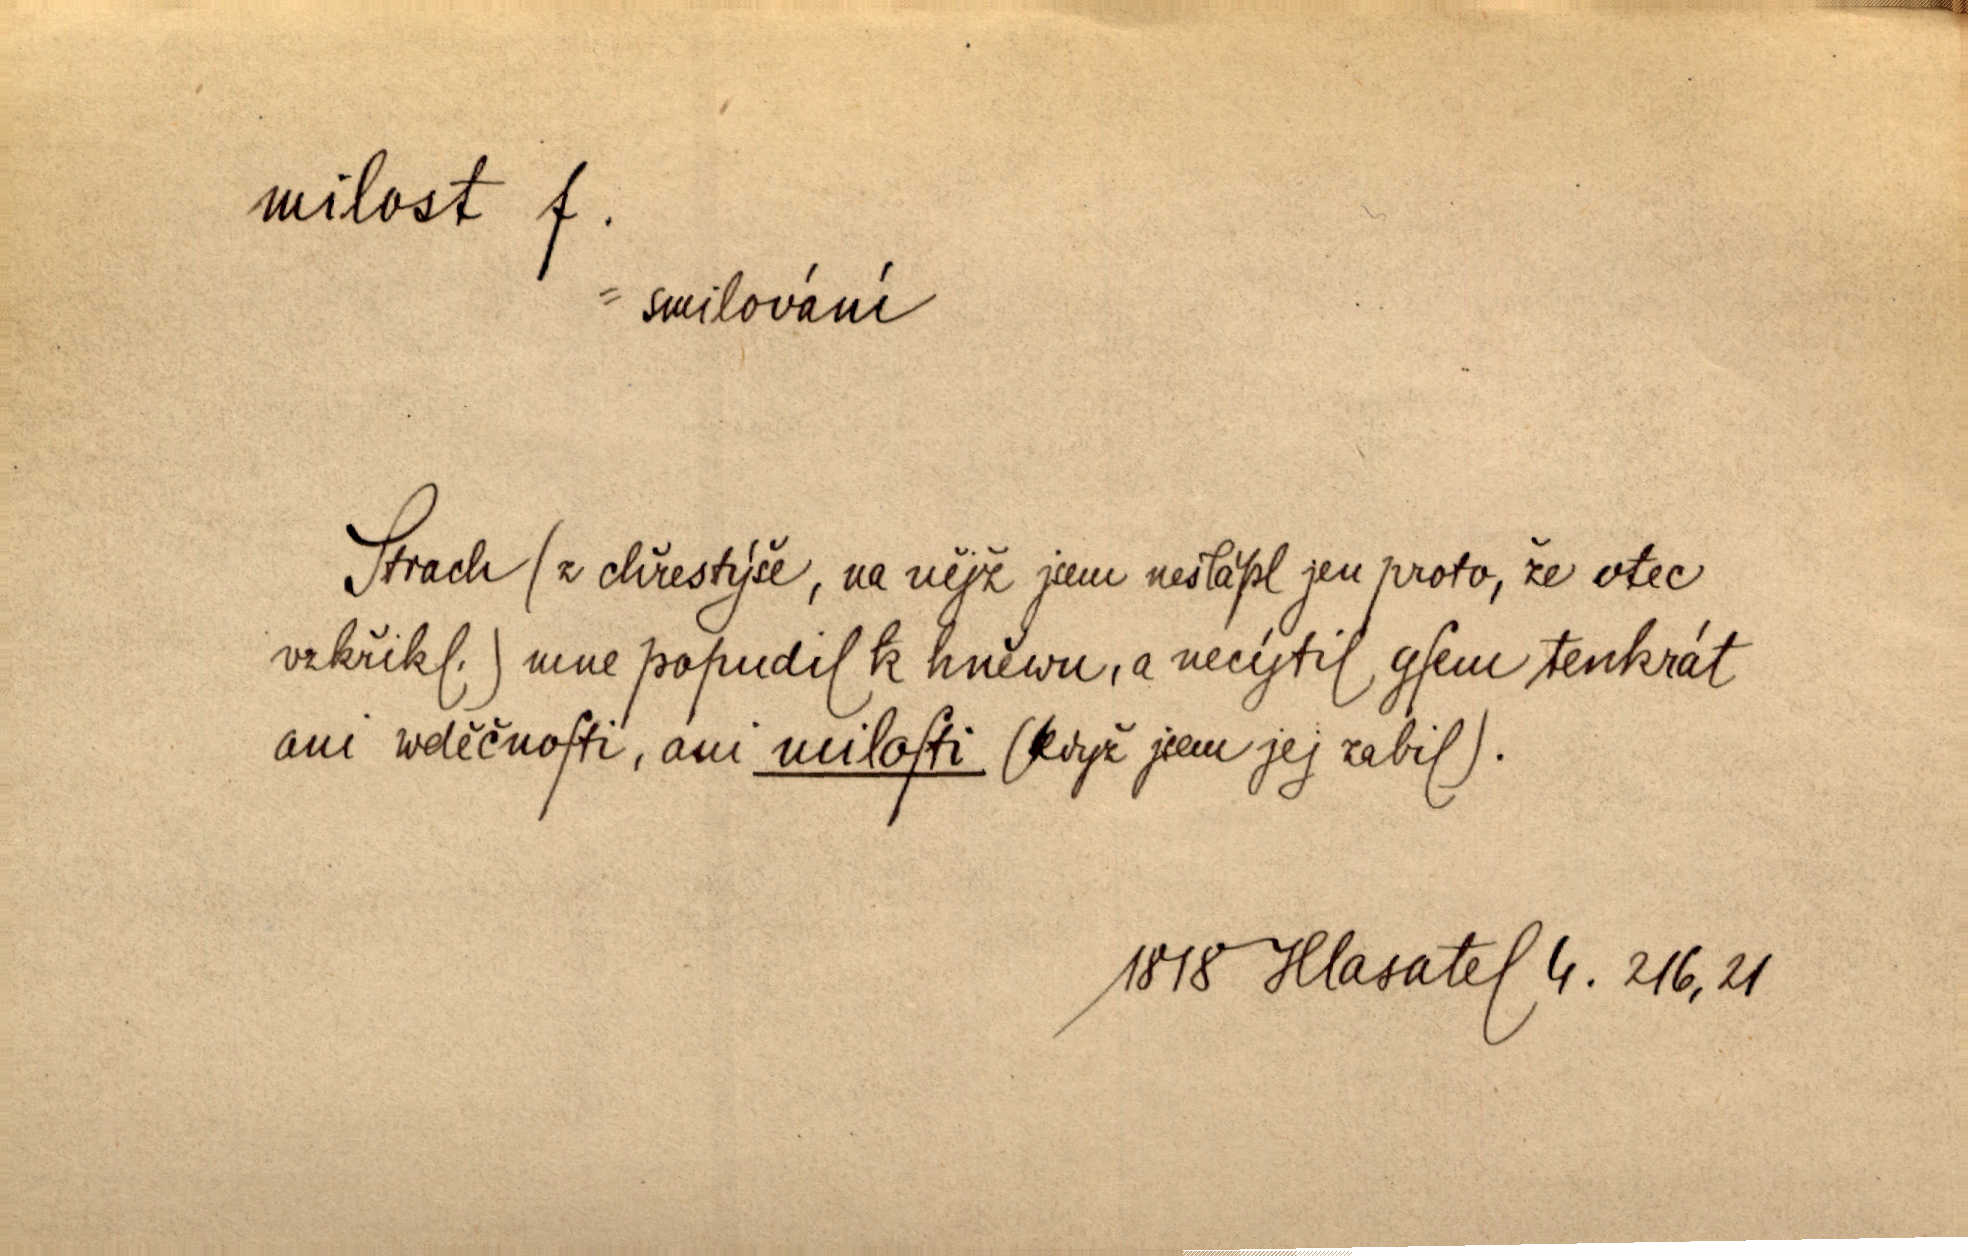 milost f.
= smilování
Strach (z chřestýše, na nějž jsem nešlápl jen proto, že otec
vzkřikl.) mne popudil k hněwu, a necýtil gſem tenkrát
ani wděčnoſti, ani miloſti (když jsem jej zabil).
1818 Hlasatel 4. 216, 21